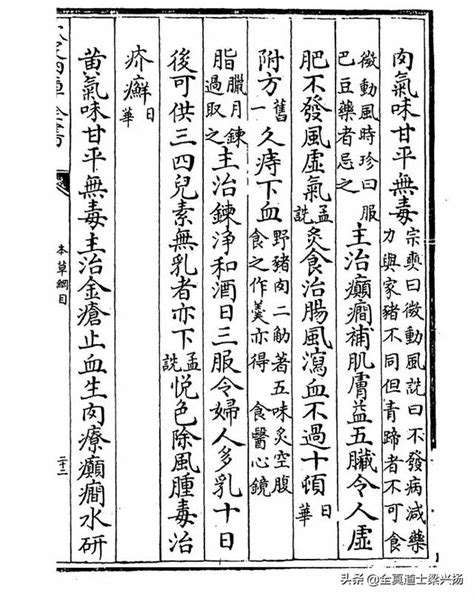 肉氣味甘平無毒宗奭曰微動風詵曰不發病減藥力與家豬不同但青蹄者不可食
微動風時珍曰服巴豆藥者忌之主治癲癇補肌膚益五臟令人虛
肥不發風虛氣孟詵炙食治腸風瀉血不過十頓日華
附方舊一久痔下血野豬肉二觔著五味炙空腹食之作羹亦得 食醫心鏡
脂臘月鍊過取之主治鍊淨和酒日三服令婦人多乳十日
後可供三四兒素無乳者亦下孟詵悅色除風腫毒治
疥癬日華
黄氣味甘平無毒主治金瘡止血生肉療癲癇水研
本草綱目
二十三
头条 @全真道士梁兴扬